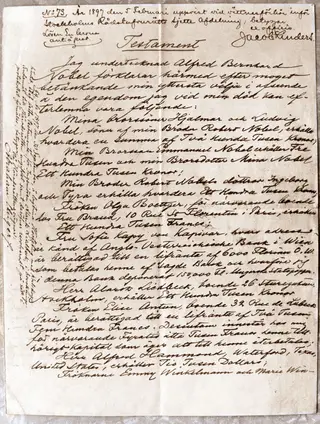 No 73. År 1897 den 5 Februari uppvist vid vittnesförhör inför
Stockholms Rådstufvurätts sjette Afdelning, betygar
Testament
Jag undertecknad Alfred Bernhard
Nobel förklarar härmed efter moget
betänkande min yttersta vilja i afseende
å den egendom jag vid min död kan ef-
terlemna vara följande:
Mina Brorsöner Hjalmar och Ludvig
Nobel, söner af min Broder Robert Nobel, erhålla
hvardera en summa af Två Hundra Tusen Kronor;
Min Brorson Emmanuel Nobel erhåller Tre
Hundra Tusen och min Brorsdotter Mina Nobel
Ett Hundra Tusen Kronor;
Min Broder Robert Nobels döttrar Ingeborg
och Tyra erhålla hvardera Ett Hundra Tusen Kronor;
Fröken Olga Boettger, för närvarande boende
hos Fru Brand, 10 Rue St Florentin i Paris, erhåller
Ett Hundra Tusen Francs;
Fru Sofie Kapy von Kapivar, hvars adress
är känd af Anglo-Oesterreichische Bank i Wien
är berättigad till en lifränta af 6000 Florins Ö.W.
som betalas henne af sagde Bank och hvarför jag
i denna Bank deponerat 150,000 Fl. i Ungerska statspapper
Herr Alarik Liedbeck, boende 26 Sturegatan,
Stockholm, erhåller Ett Hundra Tusen Kronor
Fröken Elise Antun, boende 32 Rue de Lubeck,
Paris, är berättigad till en lifränta af Två Tusen
Fem Hundra Francs. Desutom innestår hos mig
för närvarande Fyratio åtta Tusen Francs henne till-
hörigt kapital som äger att till henne återbetalas;
Herr Alfred Hammond, Waterford, Texas,
United States, erhåller Tio Tusen Dollars;
Fröknarne Emmy Winkelmann och Marie Win-